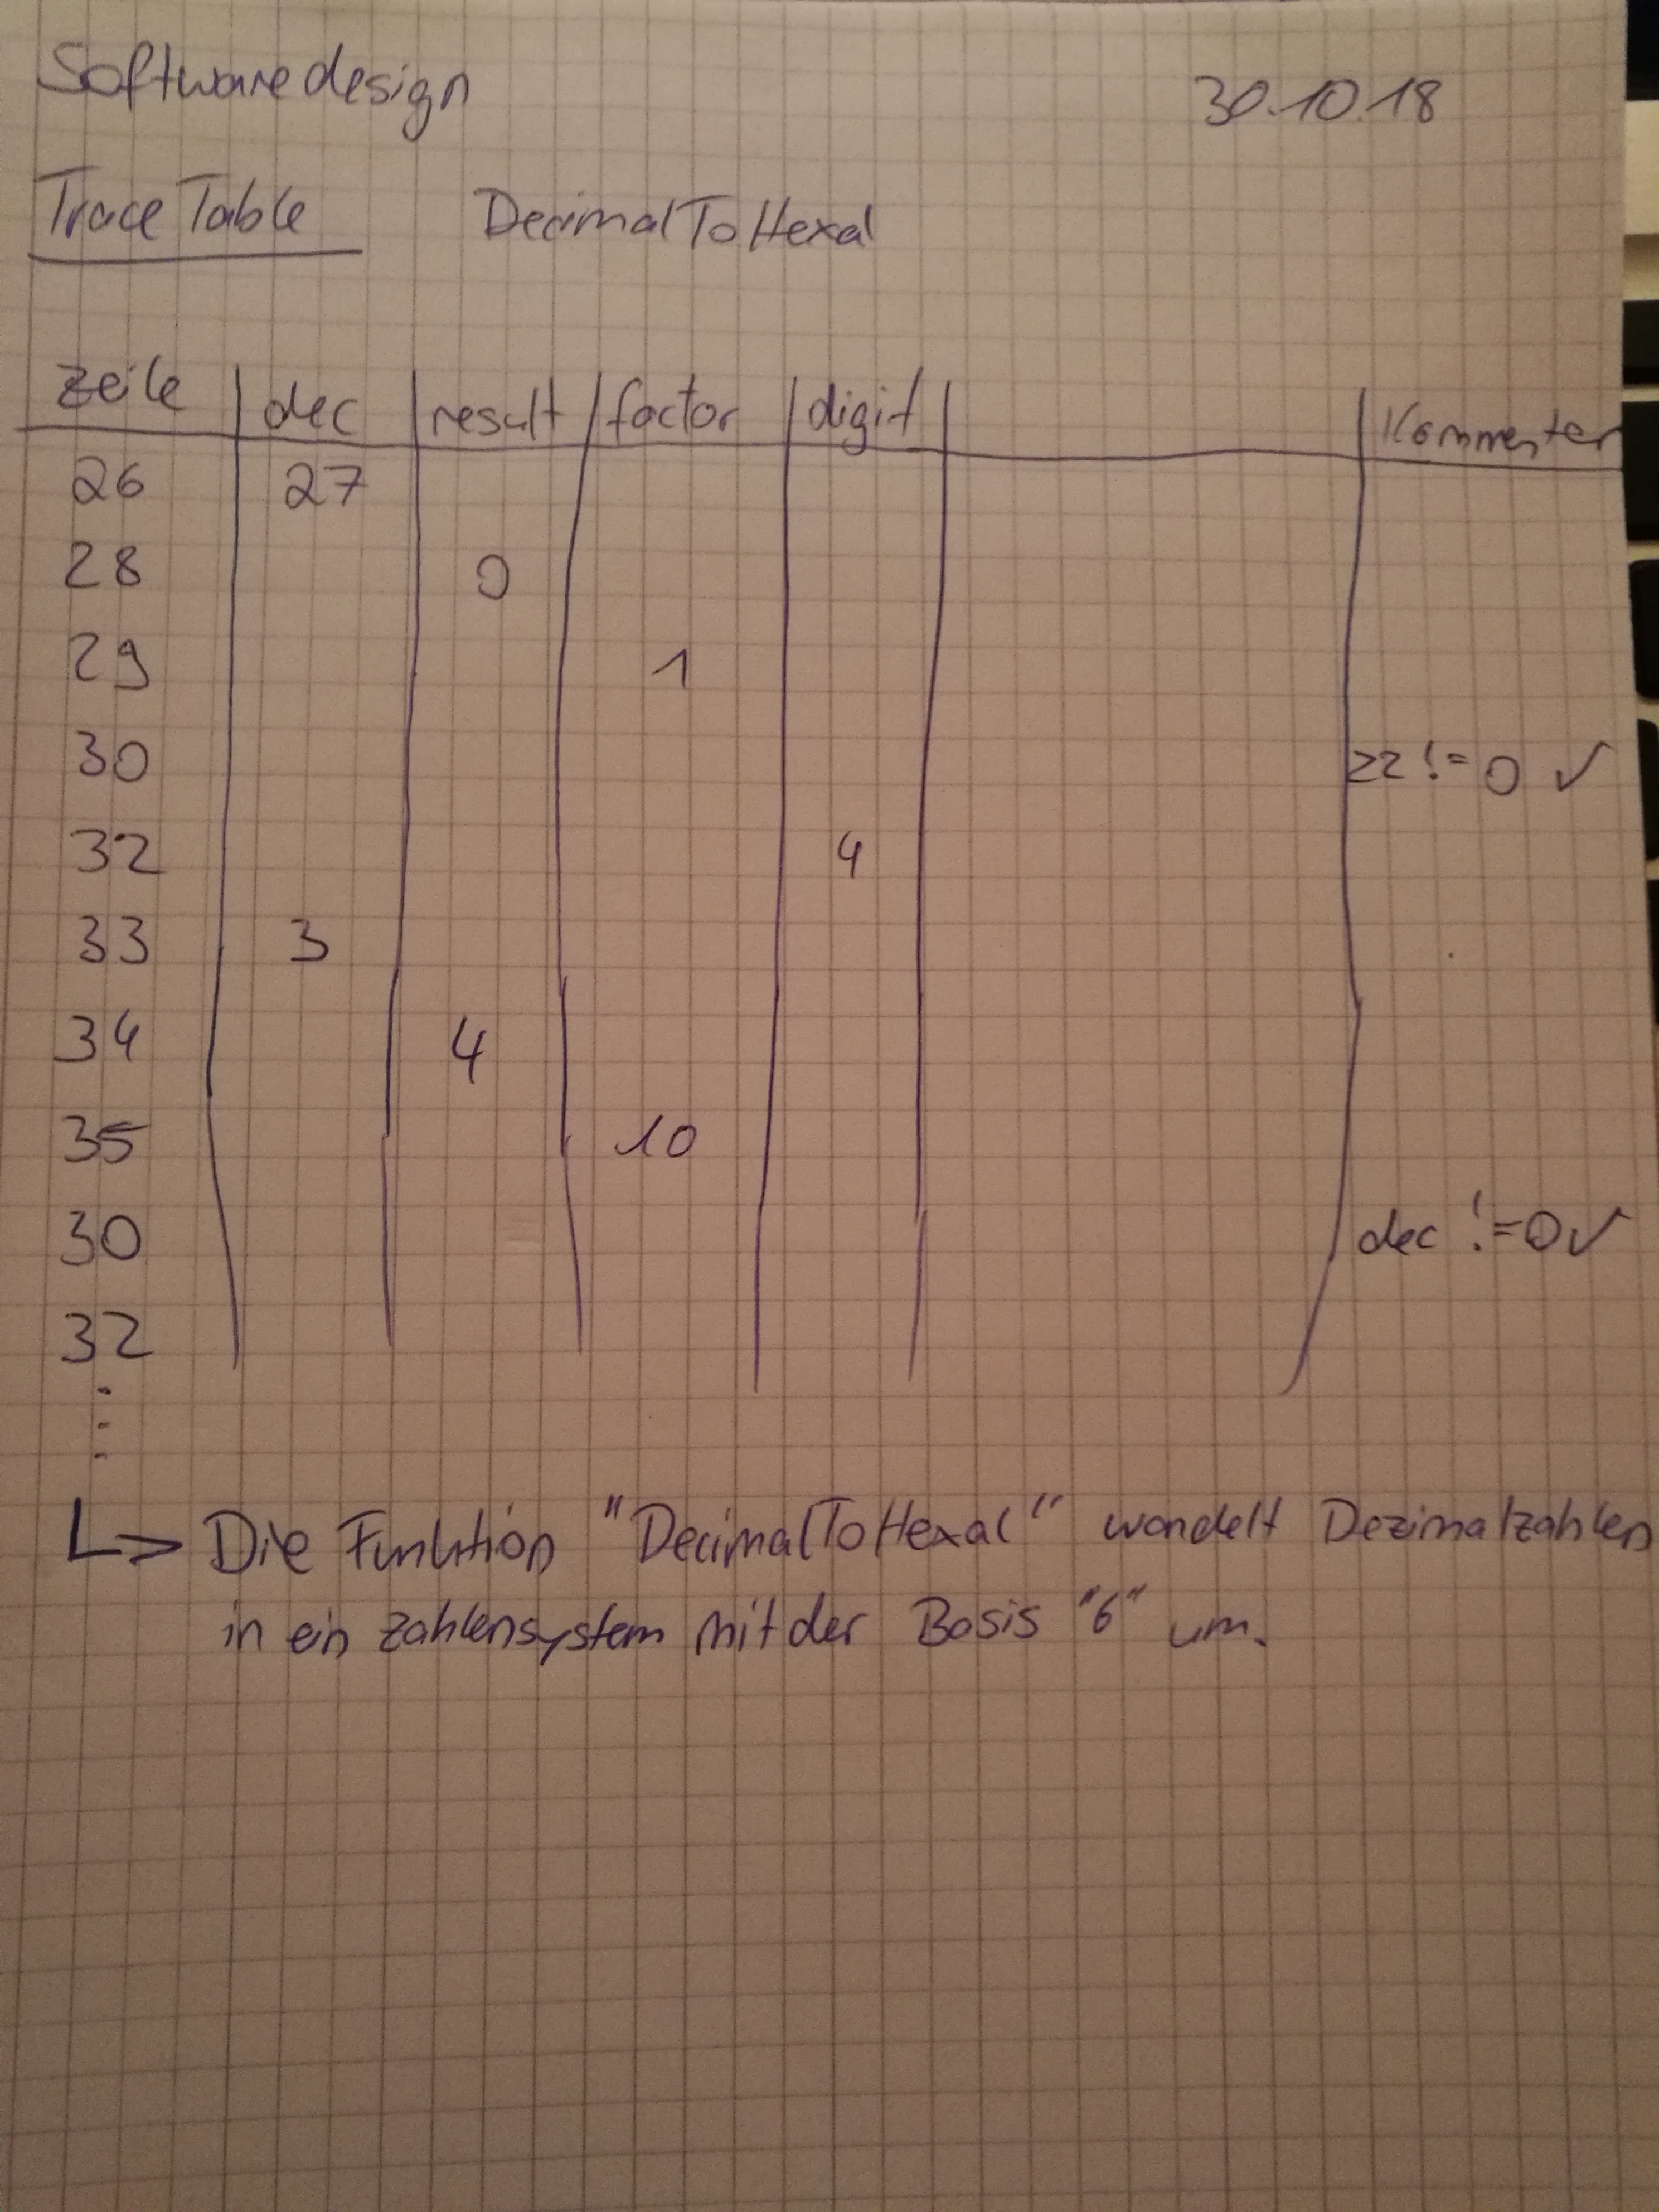 Softwaredesign 30.10.18
Trace Table DecimalToHexal
Zeile dec result factor digit Kommentar
26 27
28 0
29 1
30 22 != 0 ✓
32 4
33 3
34 4
35 10
30 dec != 0 ✓
32
⋮
L> Die Funktion "DecimalToHexal" wandelt Dezimalzahlen
in ein Zahlensystem mit der Basis "6" um.